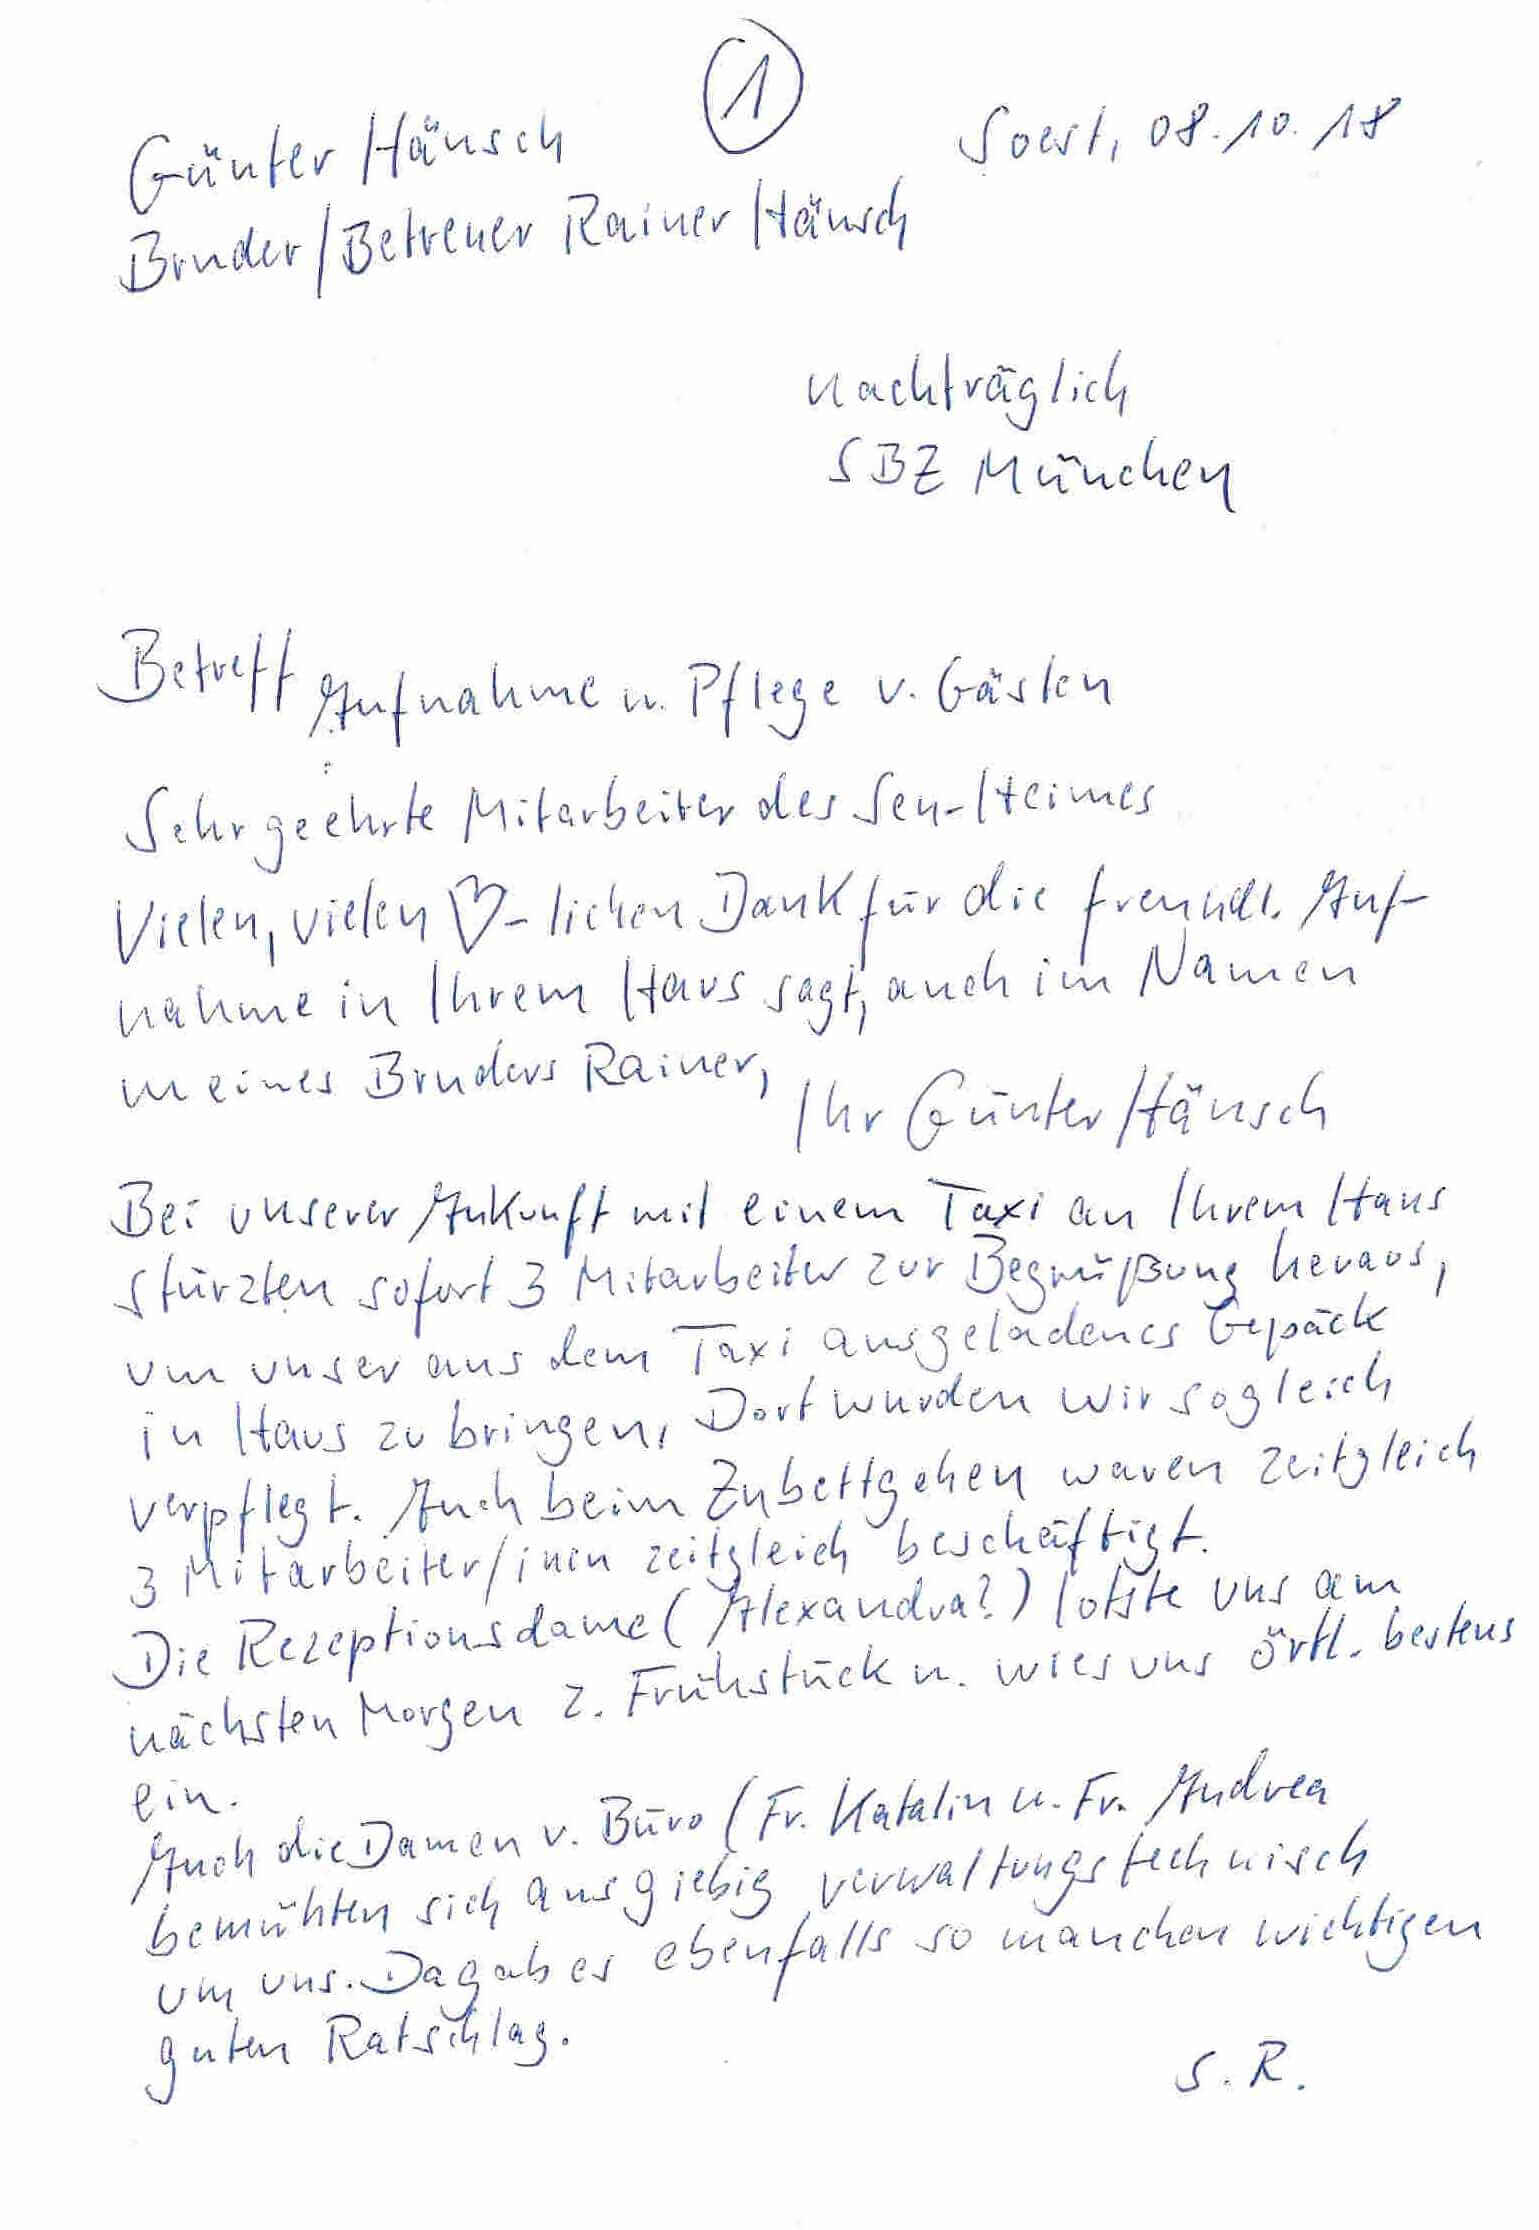 1
Günter Hänsch
Soest, 08.10.18
Bruder/Betreuer Rainer Hänsch
nachträglich
SBZ München
Betreff Aufnahme u. Pflege v. Gästen
Sehr geehrte Mitarbeiter des Sen-Heimes
Vielen, vielen ♡-lichen Dank für die freundl. Auf-
nahme in Ihrem Haus sagt, auch im Namen
meines Bruders Rainer,
Ihr Günter Hänsch
Bei unserer Ankunft mit einem Taxi an Ihrem Haus
stürzten sofort 3 Mitarbeiter zur Begrüßung heraus,
um unser aus dem Taxi ausgeladenes Gepäck
in Haus zu bringen, Dort wurden wir sogleich
verpflegt. Auch beim Zubettgehen waren zeitgleich
3 Mitarbeiter/inen zeitgleich beschäftigt.
Die Rezeptionsdame (Alexandra?) lotste uns am
nächsten Morgen z. Frühstück u. wies uns örtl. bestens
ein.
Auch die Damen v. Büro (Fr. Katalin u. Fr. Andrea
bemühten sich ausgiebig verwaltungstechnisch
um uns. Da gab es ebenfalls so manchen wichtigen
guten Ratschlag.
S. R.